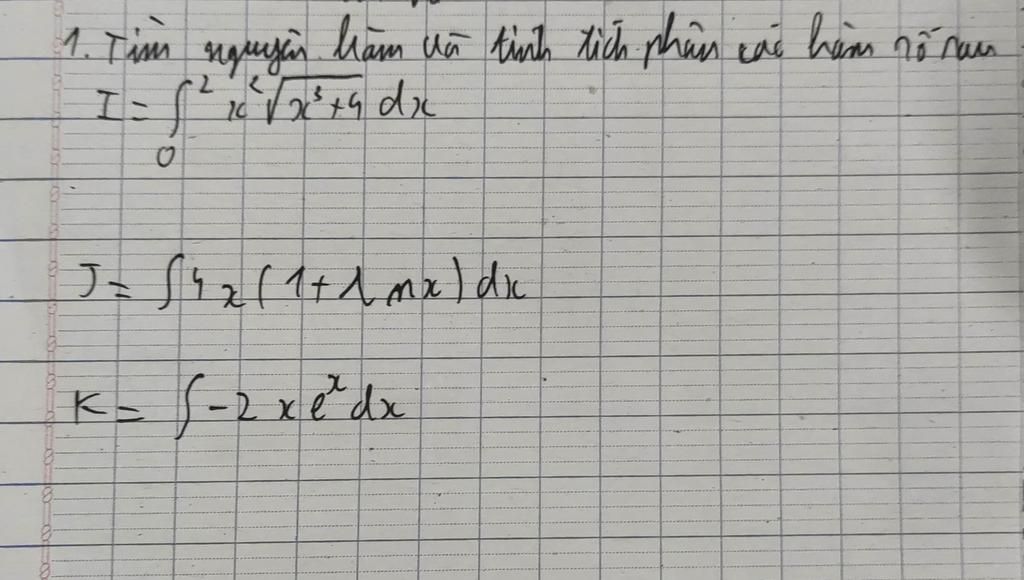 1. Tìm nguyên hàm và tính tích phân các hàm số sau
I = ∫₀² x²√(x³+4) dx
J = ∫4x(1+lnx)dx
K = ∫-2xeˣdx